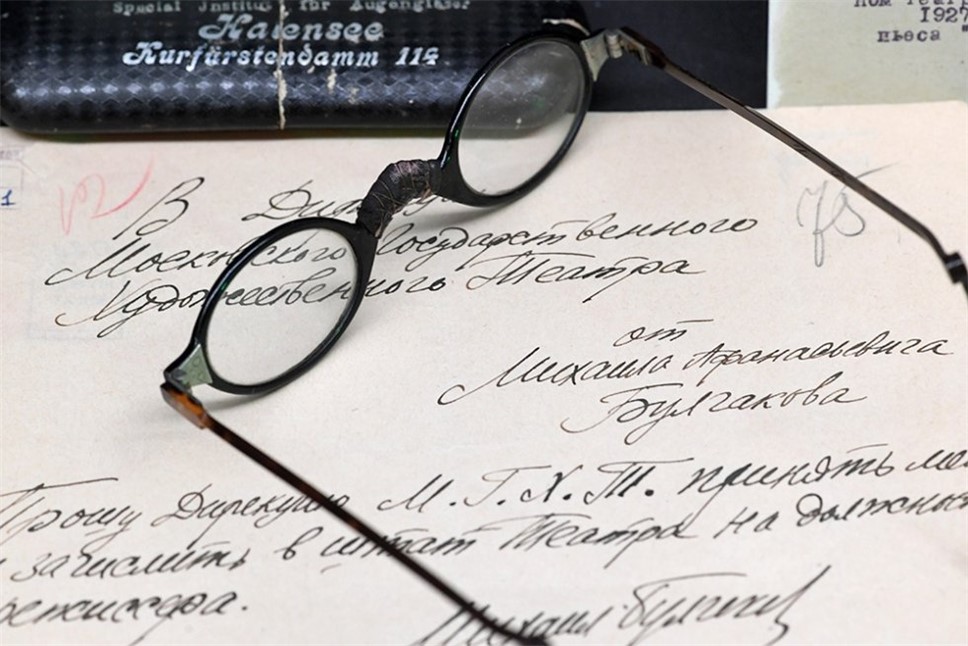 Special Institut für Augengläser
Halensee
Kurfürstendamm 114
1927
пьеса "
1
75
В Дирекцию
Московского Государственного
Художественного Театра
от
Михаила Афанасьевича
Булгакова
Прошу Дирекцию М.Г.Х.Т. принять ме
и зачислить в штат Театра на должнос
режиссера.
Михаил Булгаков